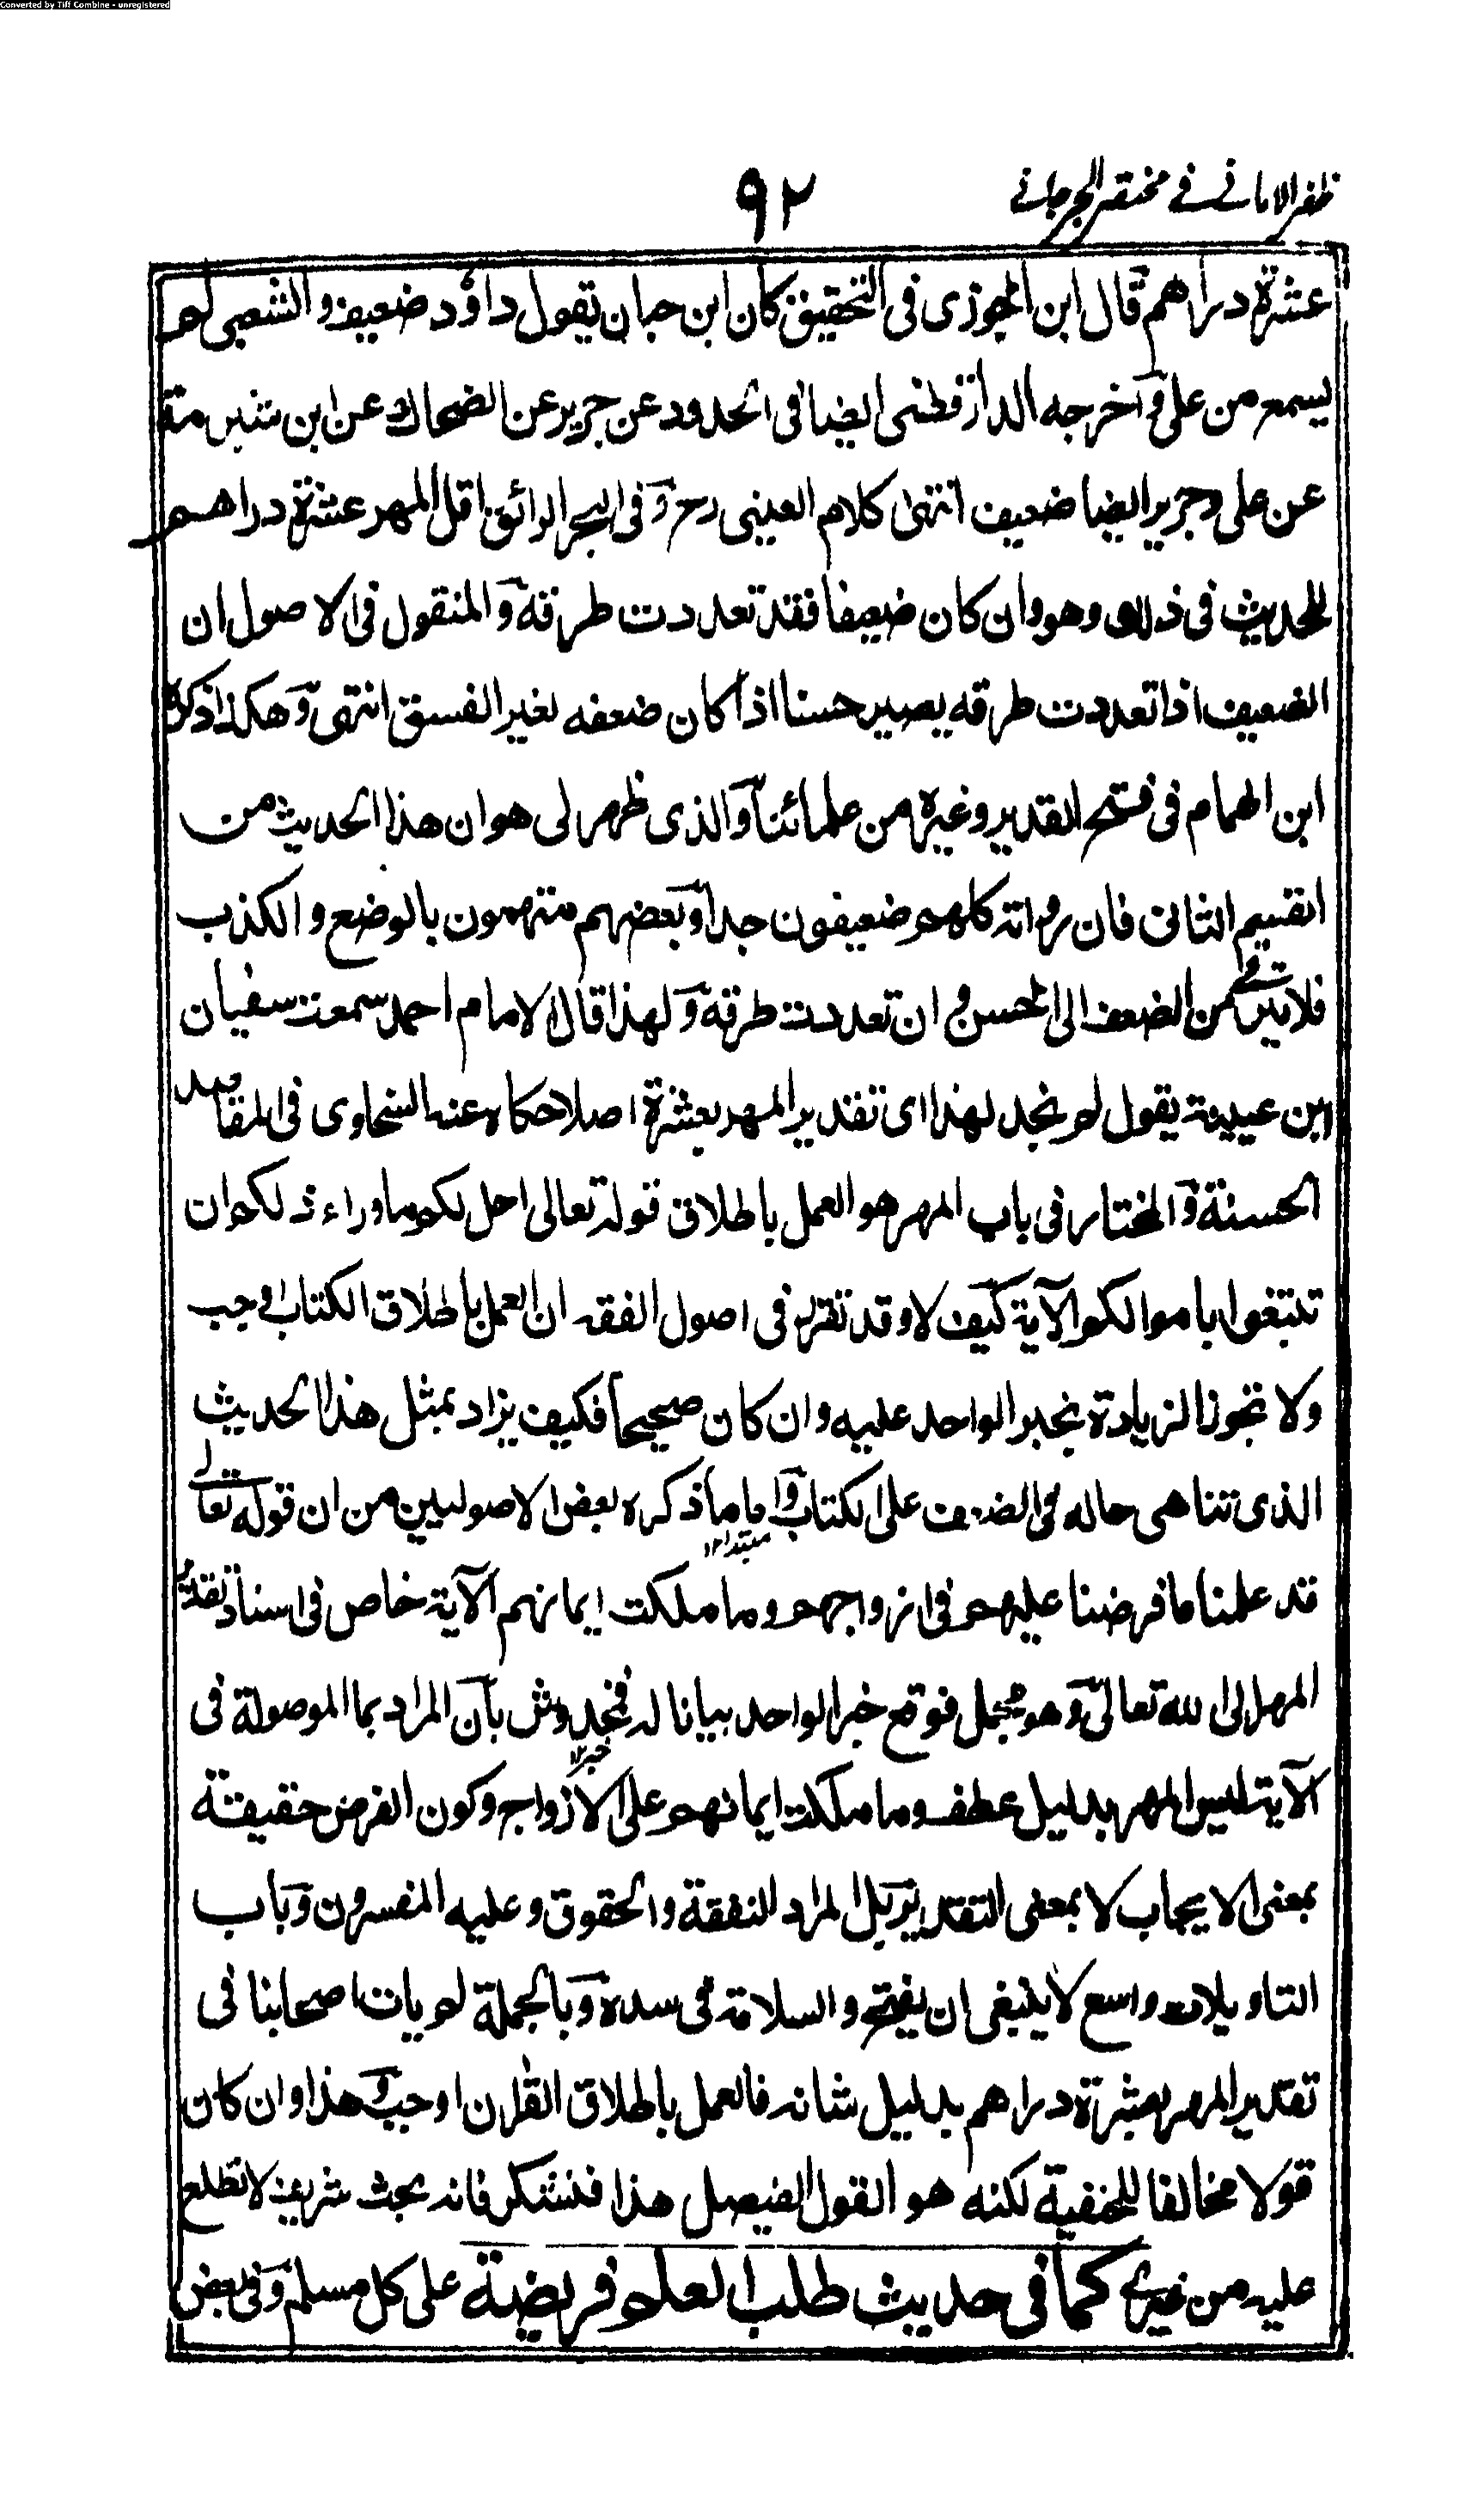 Converted by Tiff Combine - unregistered
ظفر الامانی فی مختصر الجرجانی
٩٢
عشرة دراهم قال ابن الجوزى فى التحقيق كان ابن حبان يقول داؤد ضعيف والشعبى لم
يسمع من على وآخرجه الدارقطنى ايضا فى الحدود عن جرير عن الضحاك عن ابن سبرة
عن على وجرير ايضا ضعيف انتهى كلام العينى رح وفى البحر الرائق اقل المهر عشرة دراهم
للحديث فى ذلك وهو وان كان ضعيفا فقد تعددت طرقه والمنقول فى الاصول ان
الضعيف اذا تعددت طرقه يصير حسنا اذا كان ضعفه لغير الفسق انتهى وهكذا ذكره
ابن الهمام فى فتح القدير وغيره من علمائنا والذى ظهر لى هو ان هذا الحديث من
القسم الثانى فان رواته كلهم ضعيفون جدا وبعضهم متهمون بالوضع والكذب
فلا يترقى من الضعف الى الحسن وان تعددت طرقه ولهذا قال الامام احمد سمعت سفيان
ابن عيينة يقول لم نجد لهذا اى تقدير المهر بعشرة اصلا حكاه عنه السخاوى فى المقاصد
الحسنة والمختار فى باب المهر هو العمل باطلاق قوله تعالى احل لكم ما وراء ذلكم ان
تبتغوا باموالكم الآية كيف لا وقد تقرر فى اصول الفقه ان العمل باطلاق الكتاب اوجب
ولا تجوز الزيادة بخبر الواحد عليه وان كان صحيحا فكيف يزاد بمثل هذا الحديث
الذى تناهى حاله فى الضعف على الكتاب واما ما ذكره بعض الاصوليين من ان قوله تعالى
مبتدا١٢
قد علمنا ما فرضنا عليهم فى ازواجهم وما ملكت ايمانهم الآية خاص فى اسناد تقدير
المهر الى الله تعالى وهو مجمل فوقع خبر الواحد بيانا له فمخدوش بان المراد بما الموصولة فى
خبر١٢
الآية ليس المهر بدليل عطف وما ملكت ايمانهم على الازواج وكون الفرض حقيقة
بمعنى الايجاب لا بمعنى التقدير بل المراد النفقة والحقوق وعليه المفسرون وباب
التاويلات واسع لا ينبغى ان يفتح والسلامة فى سده وبالجملة لم يات اصحابنا فى
تقدير المهر بعشرة دراهم بدليل شاف فالعمل باطلاق القرآن اوجب وهذا وان كان
قولا مخالفا للحنفية لكنه هو القول الفيصل هذا فنشكر فانه بحث شريف لا تطلع
عليه من غيرى كما فى حديث طلب العلم فريضة على كل مسلم وفى بعض